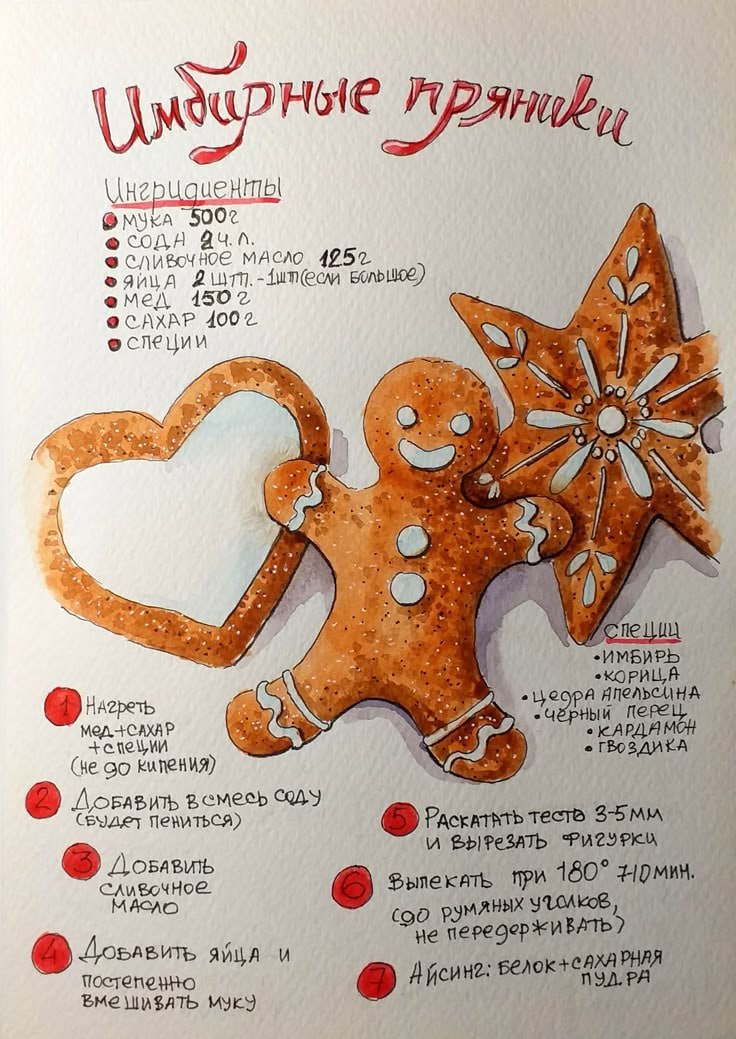 Имбирные пряники
Ингридиенты
мука 500г
сода 2ч.л.
сливочное масло 125г
яйца 2шт.-1шт(если большое)
мед 150г
сахар 100г
специи
специи
•имбирь
•корица
•цедра апельсина
•чёрный перец
•кардамон
•гвоздика
1 Нагреть
мед+сахар
+специи
(не до кипения)
2 Добавить в смесь соду
(будет пениться)
3 Добавить
сливочное
масло
4 Добавить яйца и
постепенно
вмешивать муку
5 Раскатать тесто 3-5мм
и вырезать фигурки
6 Выпекать при 180° 7-10мин.
(до румяных уголков,
не передерживать)
7 Айсинг: белок+сахарная
пудра